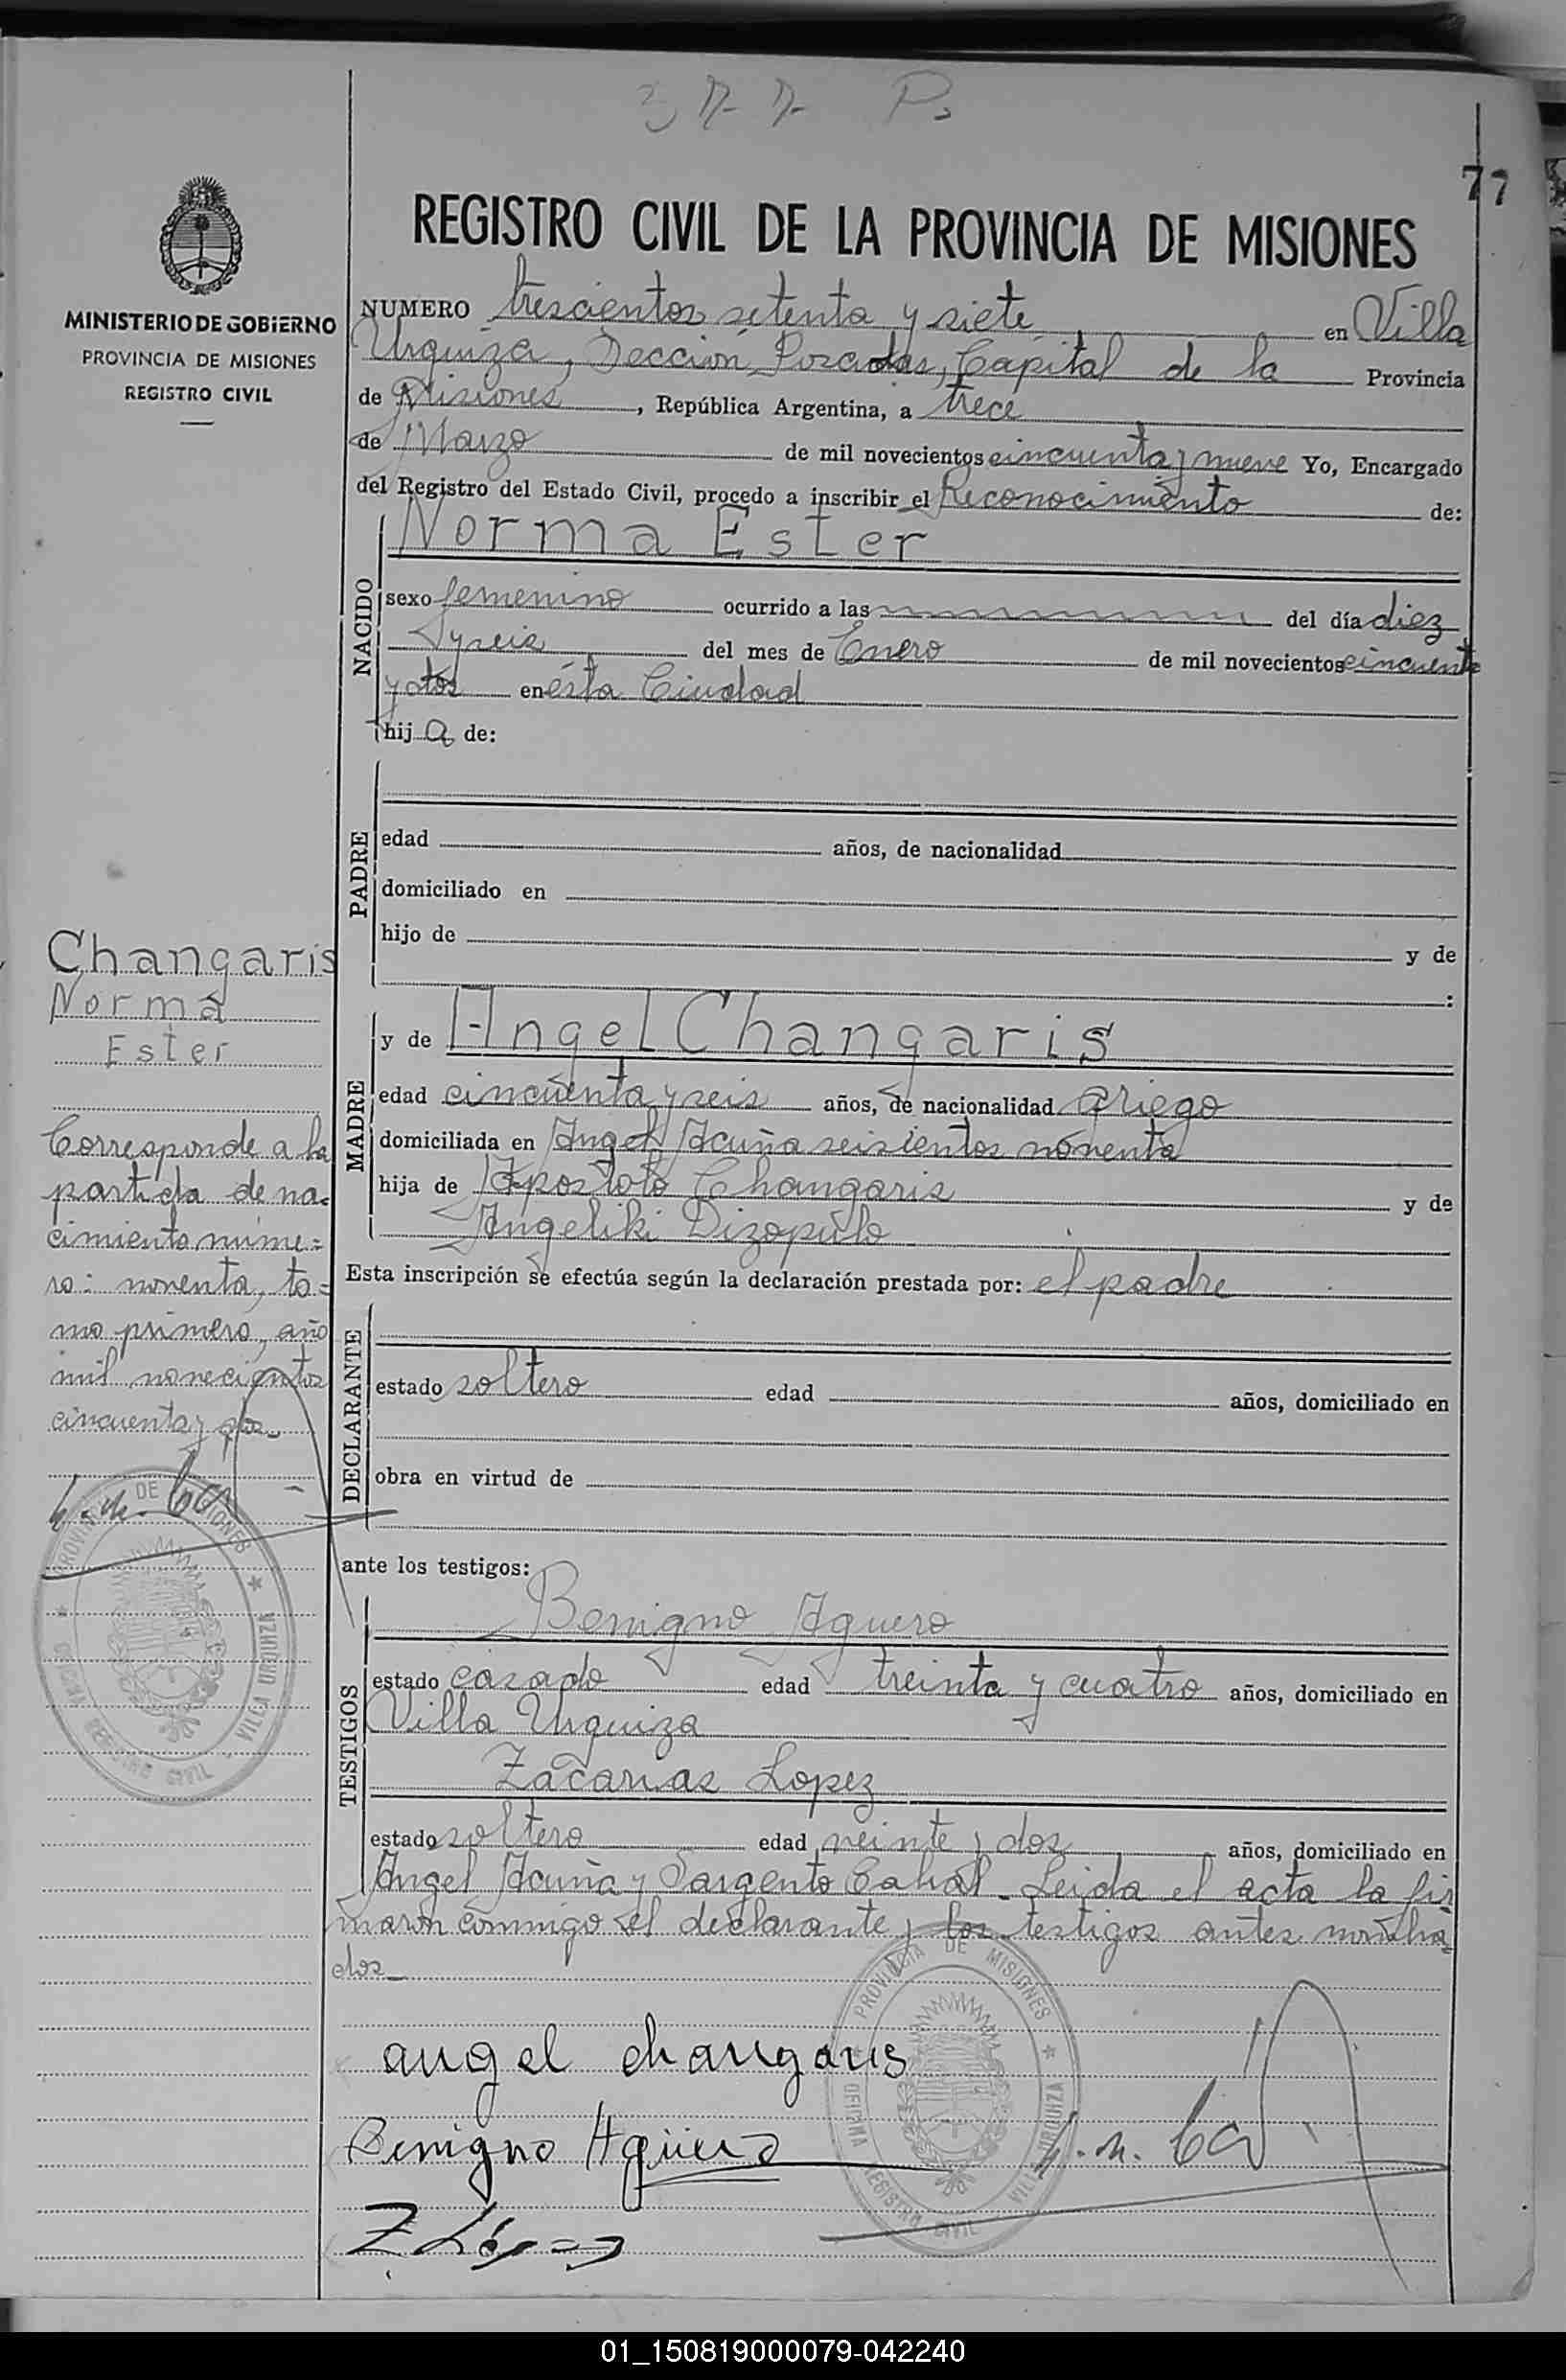 377 P.
77
REGISTRO CIVIL DE LA PROVINCIA DE MISIONES
MINISTERIO DE GOBIERNO
PROVINCIA DE MISIONES
REGISTRO CIVIL
NUMERO trescientos setenta y siete en Villa
Urquiza, Seccion Posadas, Capital de la Provincia
de Misiones, República Argentina, a trece
de Marzo de mil novecientos cincuenta y nueve Yo, Encargado
del Registro del Estado Civil, procedo a inscribir el Reconocimiento de:
NACIDO
Norma Ester
sexo femenino ocurrido a las del día diez
y seis del mes de Enero de mil novecientos cincuenta
y dos en ésta Ciudad
hij a de:
PADRE
edad años, de nacionalidad
domiciliado en
hijo de y de
:
MADRE
y de Angel Changaris
edad cincuenta y seis años, de nacionalidad griego
domiciliada en Angel Acuña seiscientos noventa
hija de Apostolo Changaris y de
Angeliki Dizopulo
Esta inscripción se efectúa según la declaración prestada por: el padre
DECLARANTE
estado soltero edad años, domiciliado en
obra en virtud de
ante los testigos:
TESTIGOS
Benigno Aguero
estado casado edad treinta y cuatro años, domiciliado en
Villa Urquiza
Zacarias Lopez
estado soltero edad veinte y dos años, domiciliado en
Angel Acuña y Sargento Cabral. Leida el acta la fir
maron conmigo el declarante y los testigos antes nombra
dos
Changaris
Norma
Ester
Corresponde a la
partida de na-
cimiento núme=
ro: noventa, to=
mo primero, año
mil novecientos
cincuenta y dos
PROVINCIA DE MISIONES
OFICINA REGISTRO CIVIL VILLA URQUIZA
angel changaris
Benigno Agüero
Z López
PROVINCIA DE MISIONES
OFICINA REGISTRO CIVIL VILLA URQUIZA
01_150819000079-042240